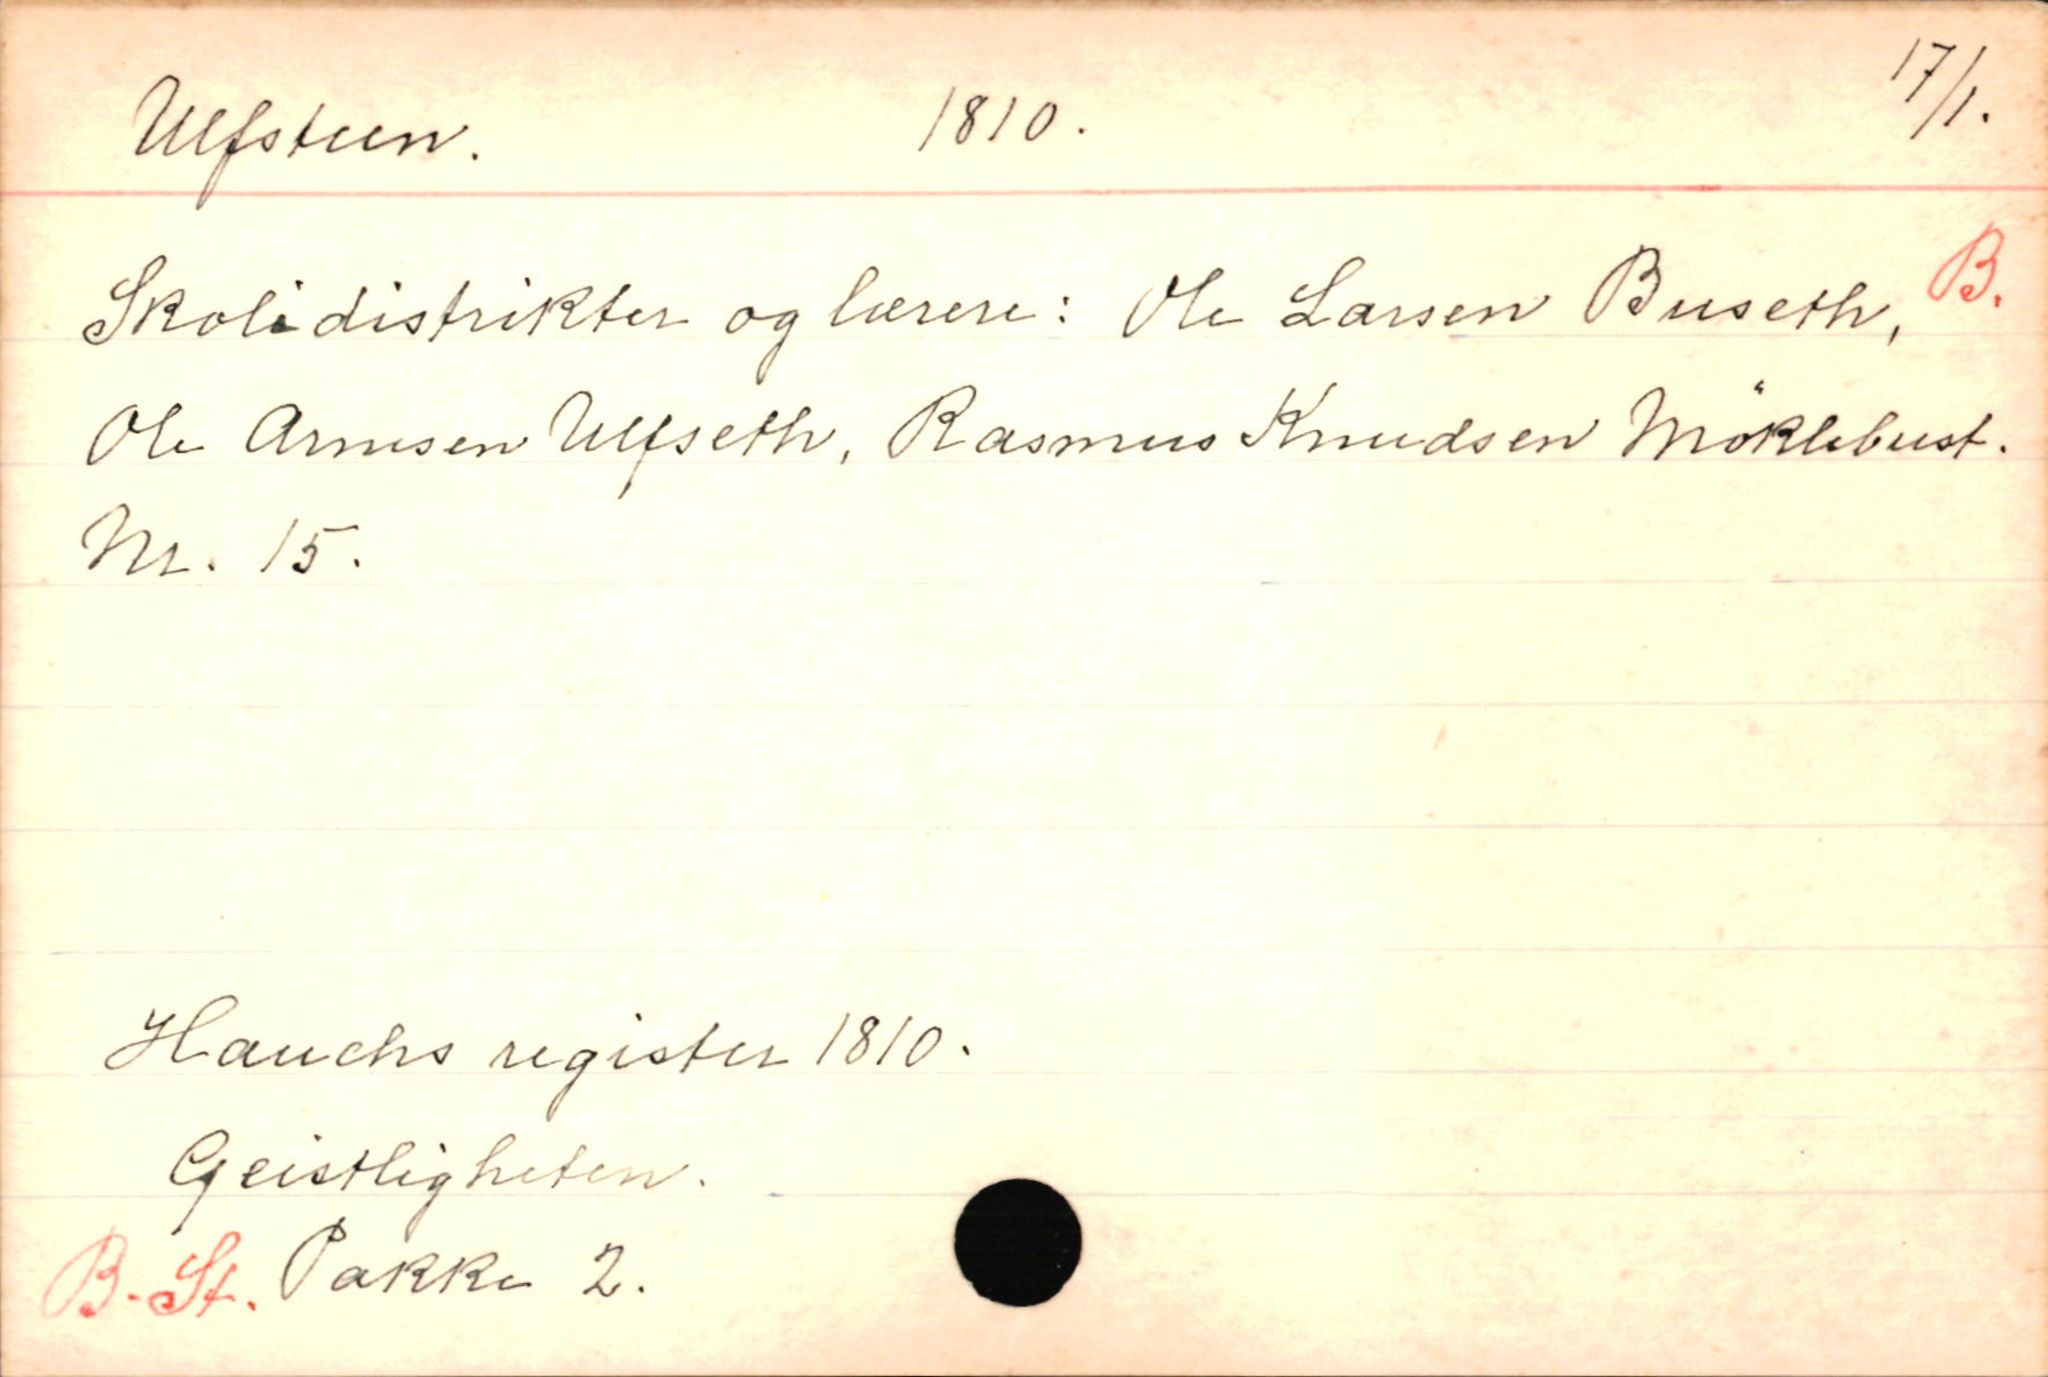 Ulfsteen. 1810. 17/1.
Skoledistrikter og lærere: Ole Larsen Buseth, B.
Ole Arnesen Ulfseth, Rasmus Knudsen Möklebust.
Nr. 15.
Hauchs register 1810.
Geistligheten.
B. St. Pakke 2.